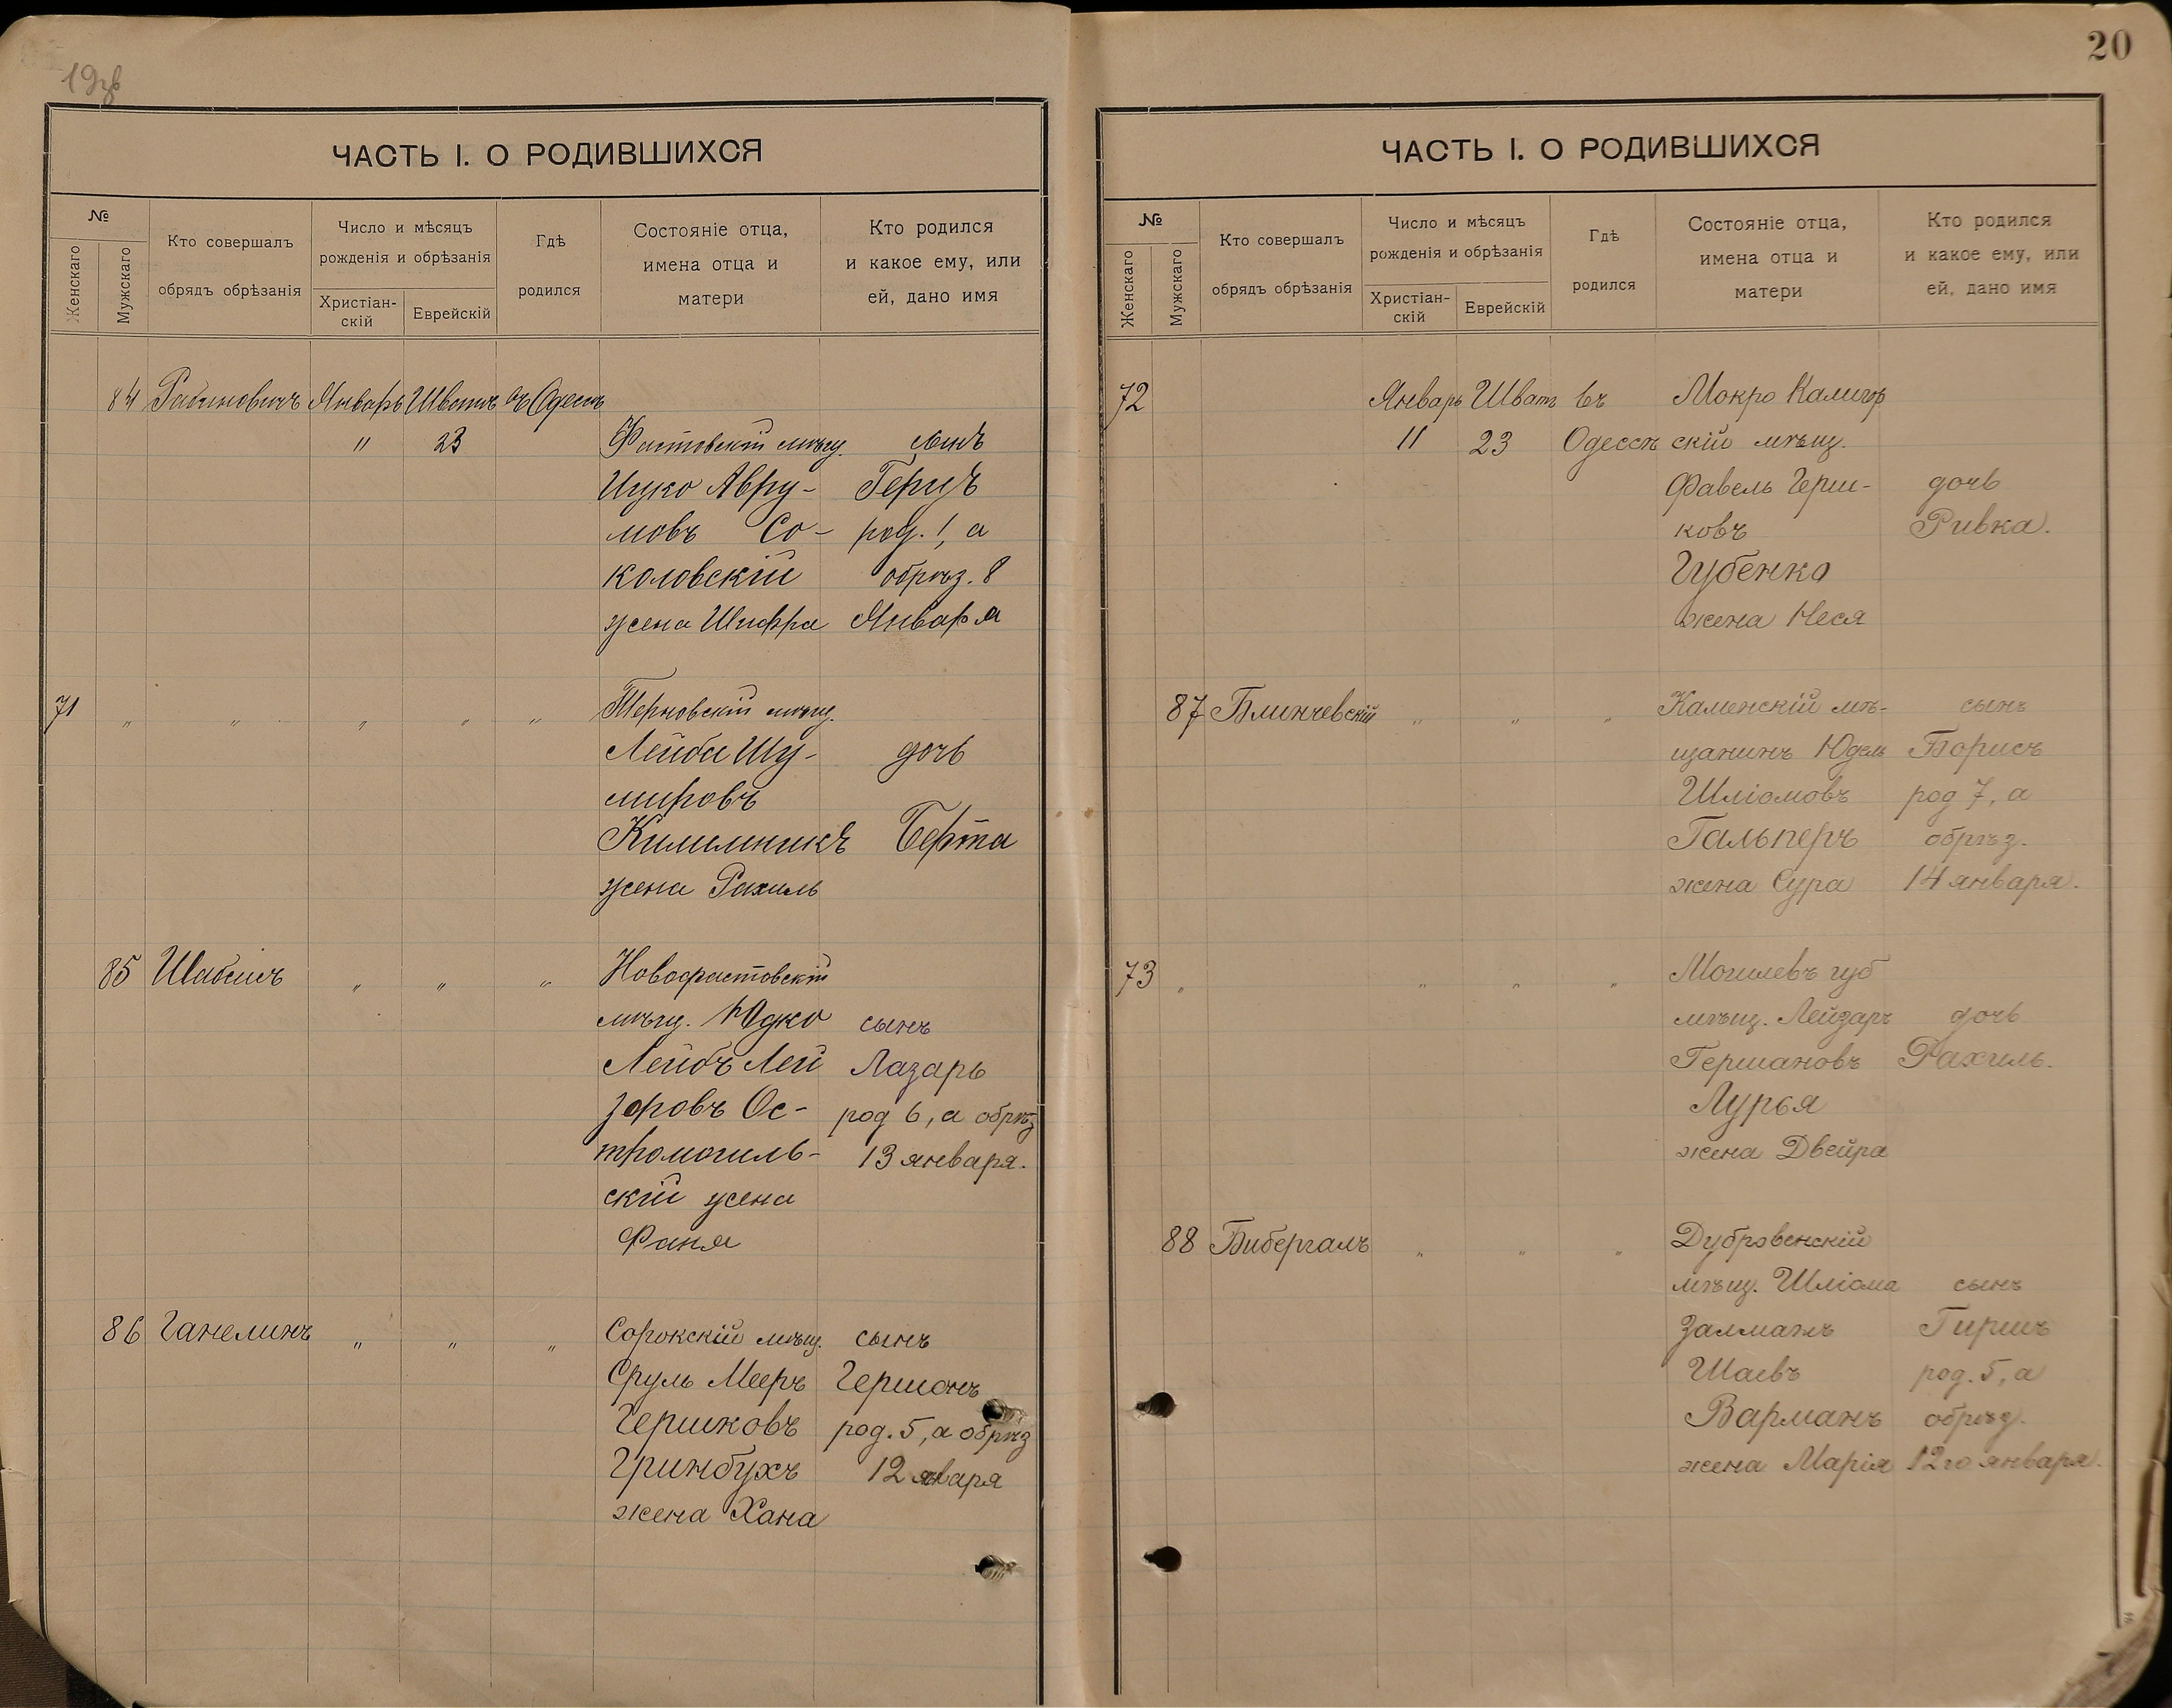 19об
ЧАСТЬ I. О РОДИВШИХСЯ
№
Женскаго
Мужскаго
Кто совершалъ
обрядъ обрѣзанія
Число и мѣсяцъ
рожденія и обрѣзанія
Христіан-
скій
Еврейскій
Гдѣ
родился
Состояніе отца,
имена отца и
матери
Кто родился
и какое ему, или
ей, дано имя
84 Рабиновичъ Январь Шватъ въ Одессѣ
11 23 Фастовскій мѣщ. сынъ
Ицко Авру- Герцъ
мовъ Со- род. 1, а
коловскій обрѣз. 8
жена Шифра Января
71 " " " " " Терновскій мѣщ.
Лейба Шу- дочь
мировъ
Килимникъ Берта
жена Рахиль
85 Шабсисъ " " " Новофастовскій
мѣщ. Юдко сынъ
Лейбъ Лей Лазарь
зоровъ Ос- род 6, а обрѣз
тромогиль- 13 января.
скій жена
Фаня
86 Ганелинъ " " " Сорокскій мѣщ. сынъ
Сруль Мееръ Гершонъ
Гершковъ род. 5, а обрѣз
Гринбухъ 12 января
жена Хана
20
ЧАСТЬ I. О РОДИВШИХСЯ
№
Женскаго
Мужскаго
Кто совершалъ
обрядъ обрѣзанія
Число и мѣсяцъ
рожденія и обрѣзанія
Христіан-
скій
Еврейскій
Гдѣ
родился
Состояніе отца,
имена отца и
матери
Кто родился
и какое ему, или
ей, дано имя
72 Январь Шватъ въ Мокро Калигор
11 23 Одессѣ скій мѣщ.
Фавель Герш- дочь
ковъ Ривка.
Губенко
жена Неся
87 Блинчевскій " " " Каменскій мѣ- сынъ
щанинъ Юдель Борисъ
Шліомовъ род 7, а
Гальперъ обрѣз.
жена Сура 14 января.
73 " " " " Могилевъ губ
мѣщ. Лейзаръ дочь
Гершановъ Рахиль.
Лурья
жена Двейра
88 Бибергалъ " " " Дубровенскій
мѣщ. Шліома сынъ
Залманъ Гиршъ
Шаевъ род. 5, а
Варманъ обрѣз.
жена Марія 12го января.